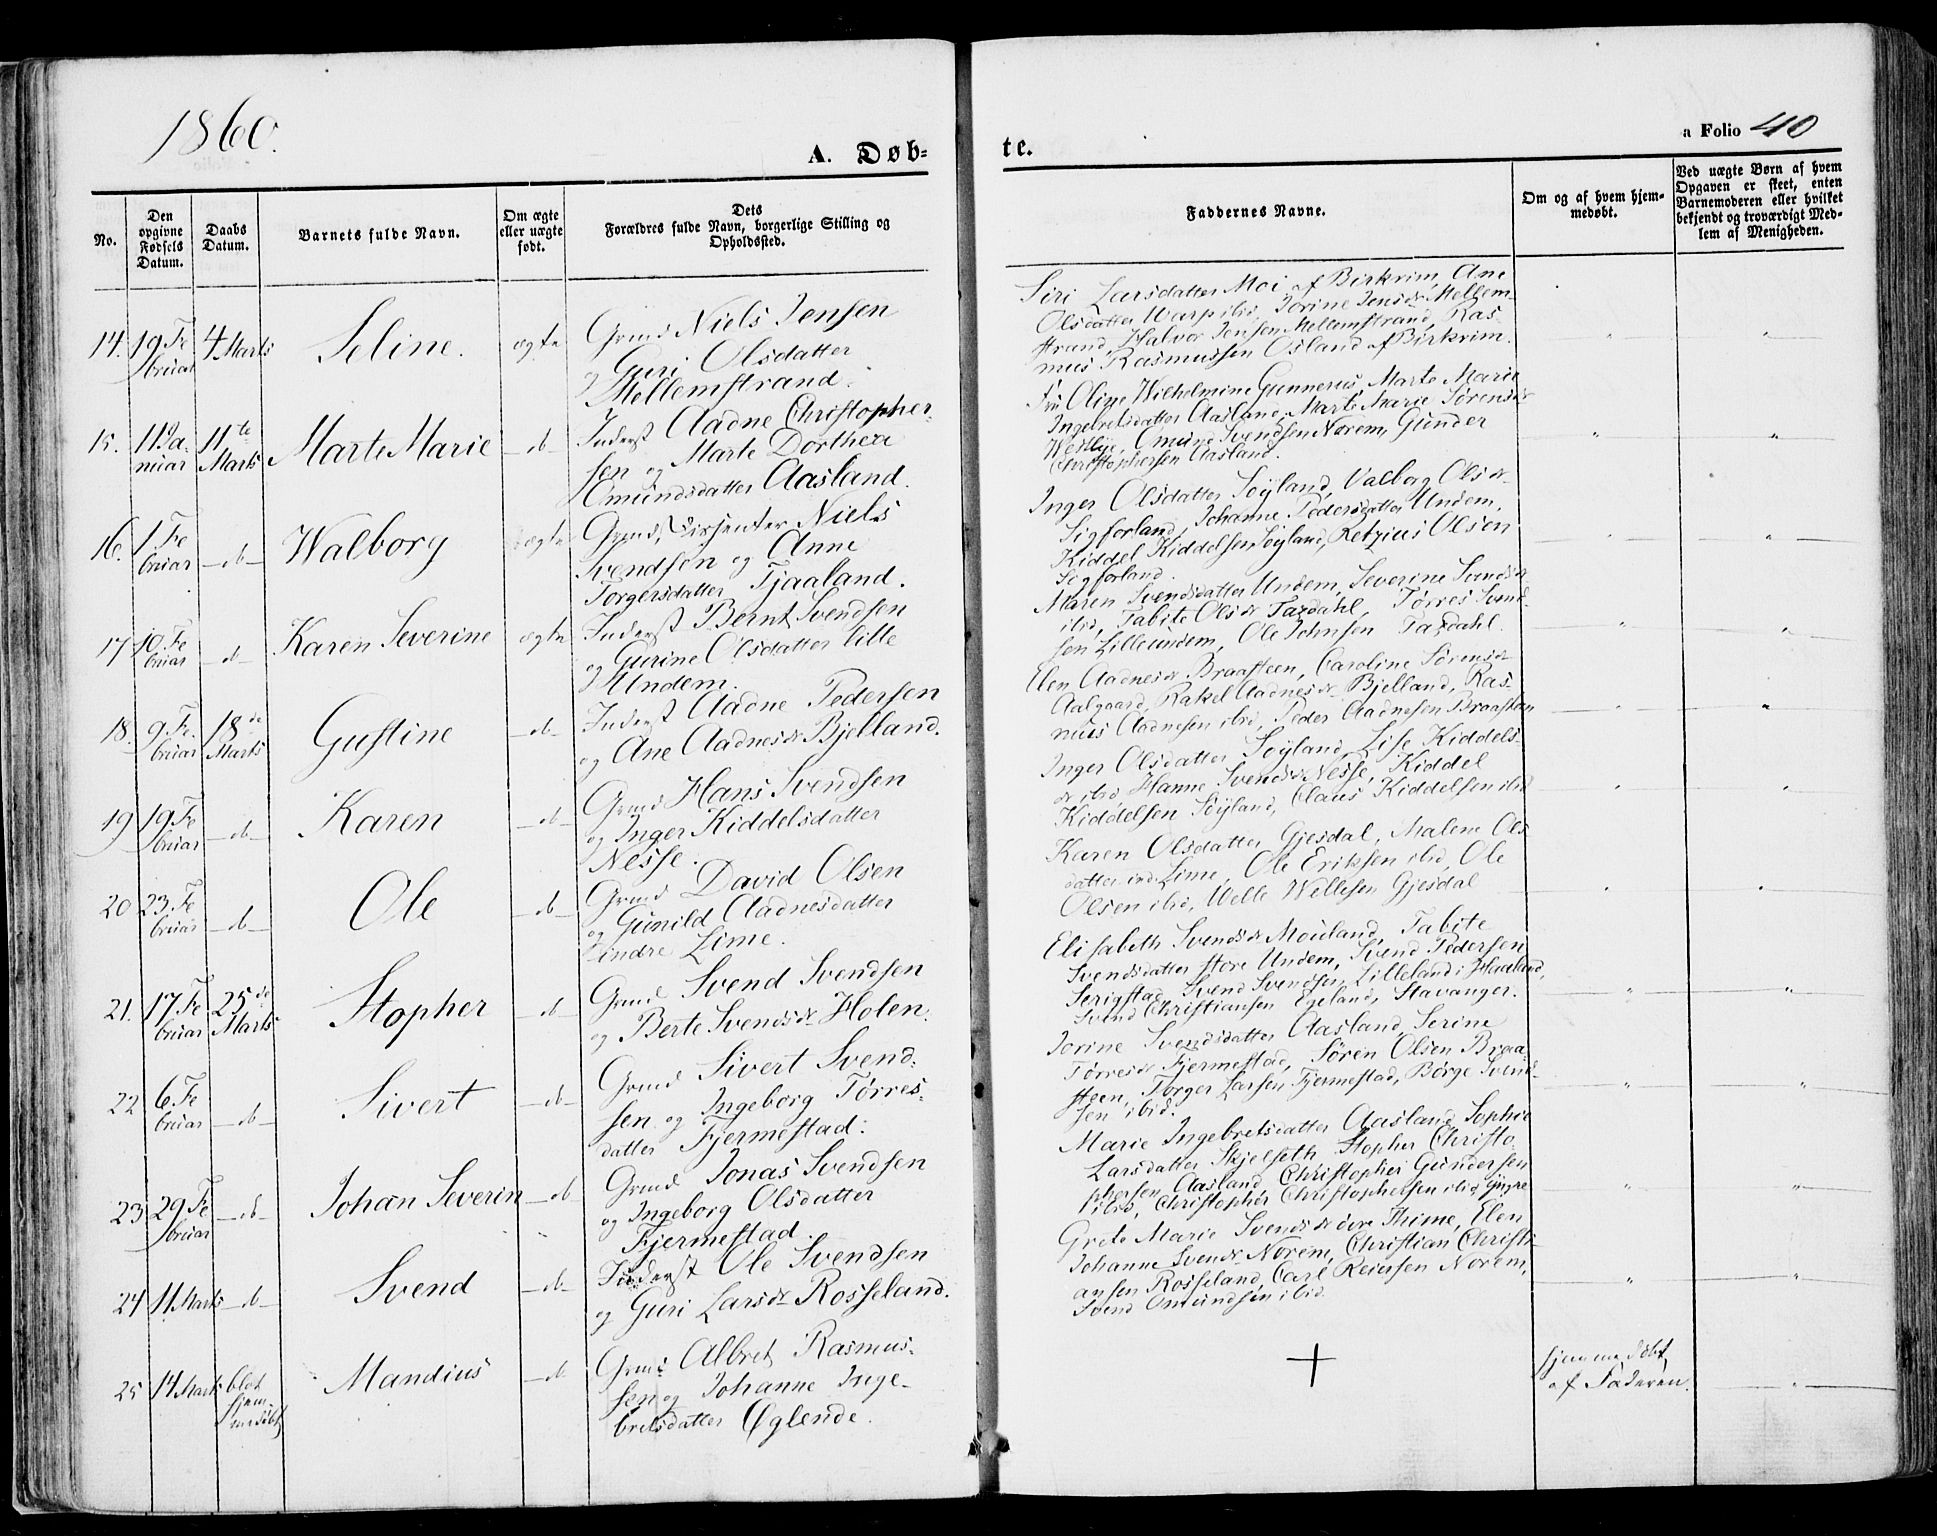 1860.
A. Døb=
te.
a Folio 40
No.
Den
opgivne
Fødsels
Datum.
Daabs
Datum.
Barnets fulde Navn.
Om ægte
eller uægte
født.
Dets
Forældres fulde Navn, borgerlige Stilling og
Opholdssted.
Faddernes Navne.
Om og af hvem hjem=
medøbt.
Ved uægte Børn af hvem
Opgaven er skeet, enten
Barnemoderen eller hvilket
bekjendt og troværdigt Med=
lem af Menigheden.
14. 19 Fe
bruar
4 Marts
Seline.
ægte
Grmd Niels Jensen
og Guri Olsdatter
Mellemstrand.
Siri Larsdatter Moi af Birkrim, Ane
Olsdatter Warp ibid, Jorine Jensdr Mellem-
strand, Halvor Jensen Mellemstrand, Ras-
mus Rasmussen Osland af Birkrim.
15. 11 Ja-
nuar
11te
Marts
Marte Marie
-do-
Inderst Aadne Christopher-
sen og Marte Dorthea
Omundsdatter Aasland.
Fru Oline Wilhelmine Gunnerus, Marte Marie
Ingebretsdatter Aasland, Marte Marie Sørensdr
Westlye, Omund Svendsen Norem, Gunder
Christophersen Aasland.
16. 1. Fe
bruar
-do-
Walborg
ægte
Grmd, Dissenter Niels
Svendsen og Anne
Torgersdatter Tjaaland.
Inger Olsdatter Søyland, Valborg Olsdr
Sigforland, Johanne Pedersdatter Undem,
Kiddel Kiddelsen Søyland, Retzius Olsen
Sigforland.
17 10. Fe
bruar
-do-
Karen Severine
ægte
Inderst Bernt Svendsen
og Gurine Olsdatter lille
Undem.
Maren Svendsdatter Undem, Severine Svendsdr
ibid, Tabite Olsdr Taxdahl, Tørres Svend-
sen Lilleundem, Ole Johnsen Taxdahl.
18. 9. Fe.
bruar
18de
Marts
Gustine
-do-
Inderst Aadne Pedersen
og Ane Aadnesdr Bjelland.
Elen Aadnesdr Braasteen, Caroline Sørensdr
Aalgaard, Rakel Aadnesdr Bjelland, Ras-
mus Aadnesen ibid, Peder Aadnesen Braasteen
19 19 Fe
bruar
-do-
Karen
-do-
Grmd Hans Svendsen
og Inger Kiddelsdatter
Nesse.
Inger Olsdatter Søyland, Lise Kiddels-
dr ibid, Hanne Svendsdr Nesse, Kiddel
Kiddelsen Søyland, Claus Kiddelsen ibid
20 23. Fe
bruar
-do-
Ole
-do-
Grmd David Olsen
og Gunild Aadnesdatter
indre Lime.
Karen Olsdatter Gjesdal, Malene Ols
datter ind Lime, Ole Eriksen ibid, Ole
Olsen ibid, Welle Wellesen Gjesdal
21. 17. Fe
bruar
25de
Marts
Stopher
-do-
Grmd Svend Svendsen
og Berte Svendsdr Holen.
Elisabeth Svendsdr Mouland, Tabite
Svendsdatter store Undem, Svend Pedersen
Serigstad, Svend Svendsen, Lilleland i Haaland,
Svend Christiansen Egeland, Stavanger.
22 6. Fe
bruar
-do-
Sivert
-do-
Grmd Sivert Svend-
sen og Ingeborg Tørres-
datter Fjermestad.
Jorine Svendsdatter Aasland, Serine
Tørresdr Fjermestad, Søren Olsen Braa-
steen, Torger Larsen Fjermestad, Børge Svend-
sen ibid.
23 29 Fe
bruar
-do-
Johan Severin
-do-
Grmd Jonas Svendsen
og Ingeborg Olsdatter
Fjermestad.
Marie Ingebretsdatter Aasland, Sophie
Larsdatter Skjelseth, Stopher Christo-
phersen Aasland, Christopher Gundersen
ibid, Christopher Christophersen ibid yngre
24 11 Marts
-do-
Svend
-do-
Inderst Ole Svendsen
og Guri Larsdr Rosseland.
Grete Marie Svendsdr øvre Thime, Elen
Johanne Svendsdr Norem, Christian Christi-
ansen Rosseland, Carl Reiersen Norem,
Svend Omundsen ibid.
25 14 Marts
blot
hjem-
medøbt
Mandius
-do-
Grmd Albret Rasmus-
sen og Johanne Inge-
bretsdatter Øglende.
+
hjemmedøbt
af Faderen.